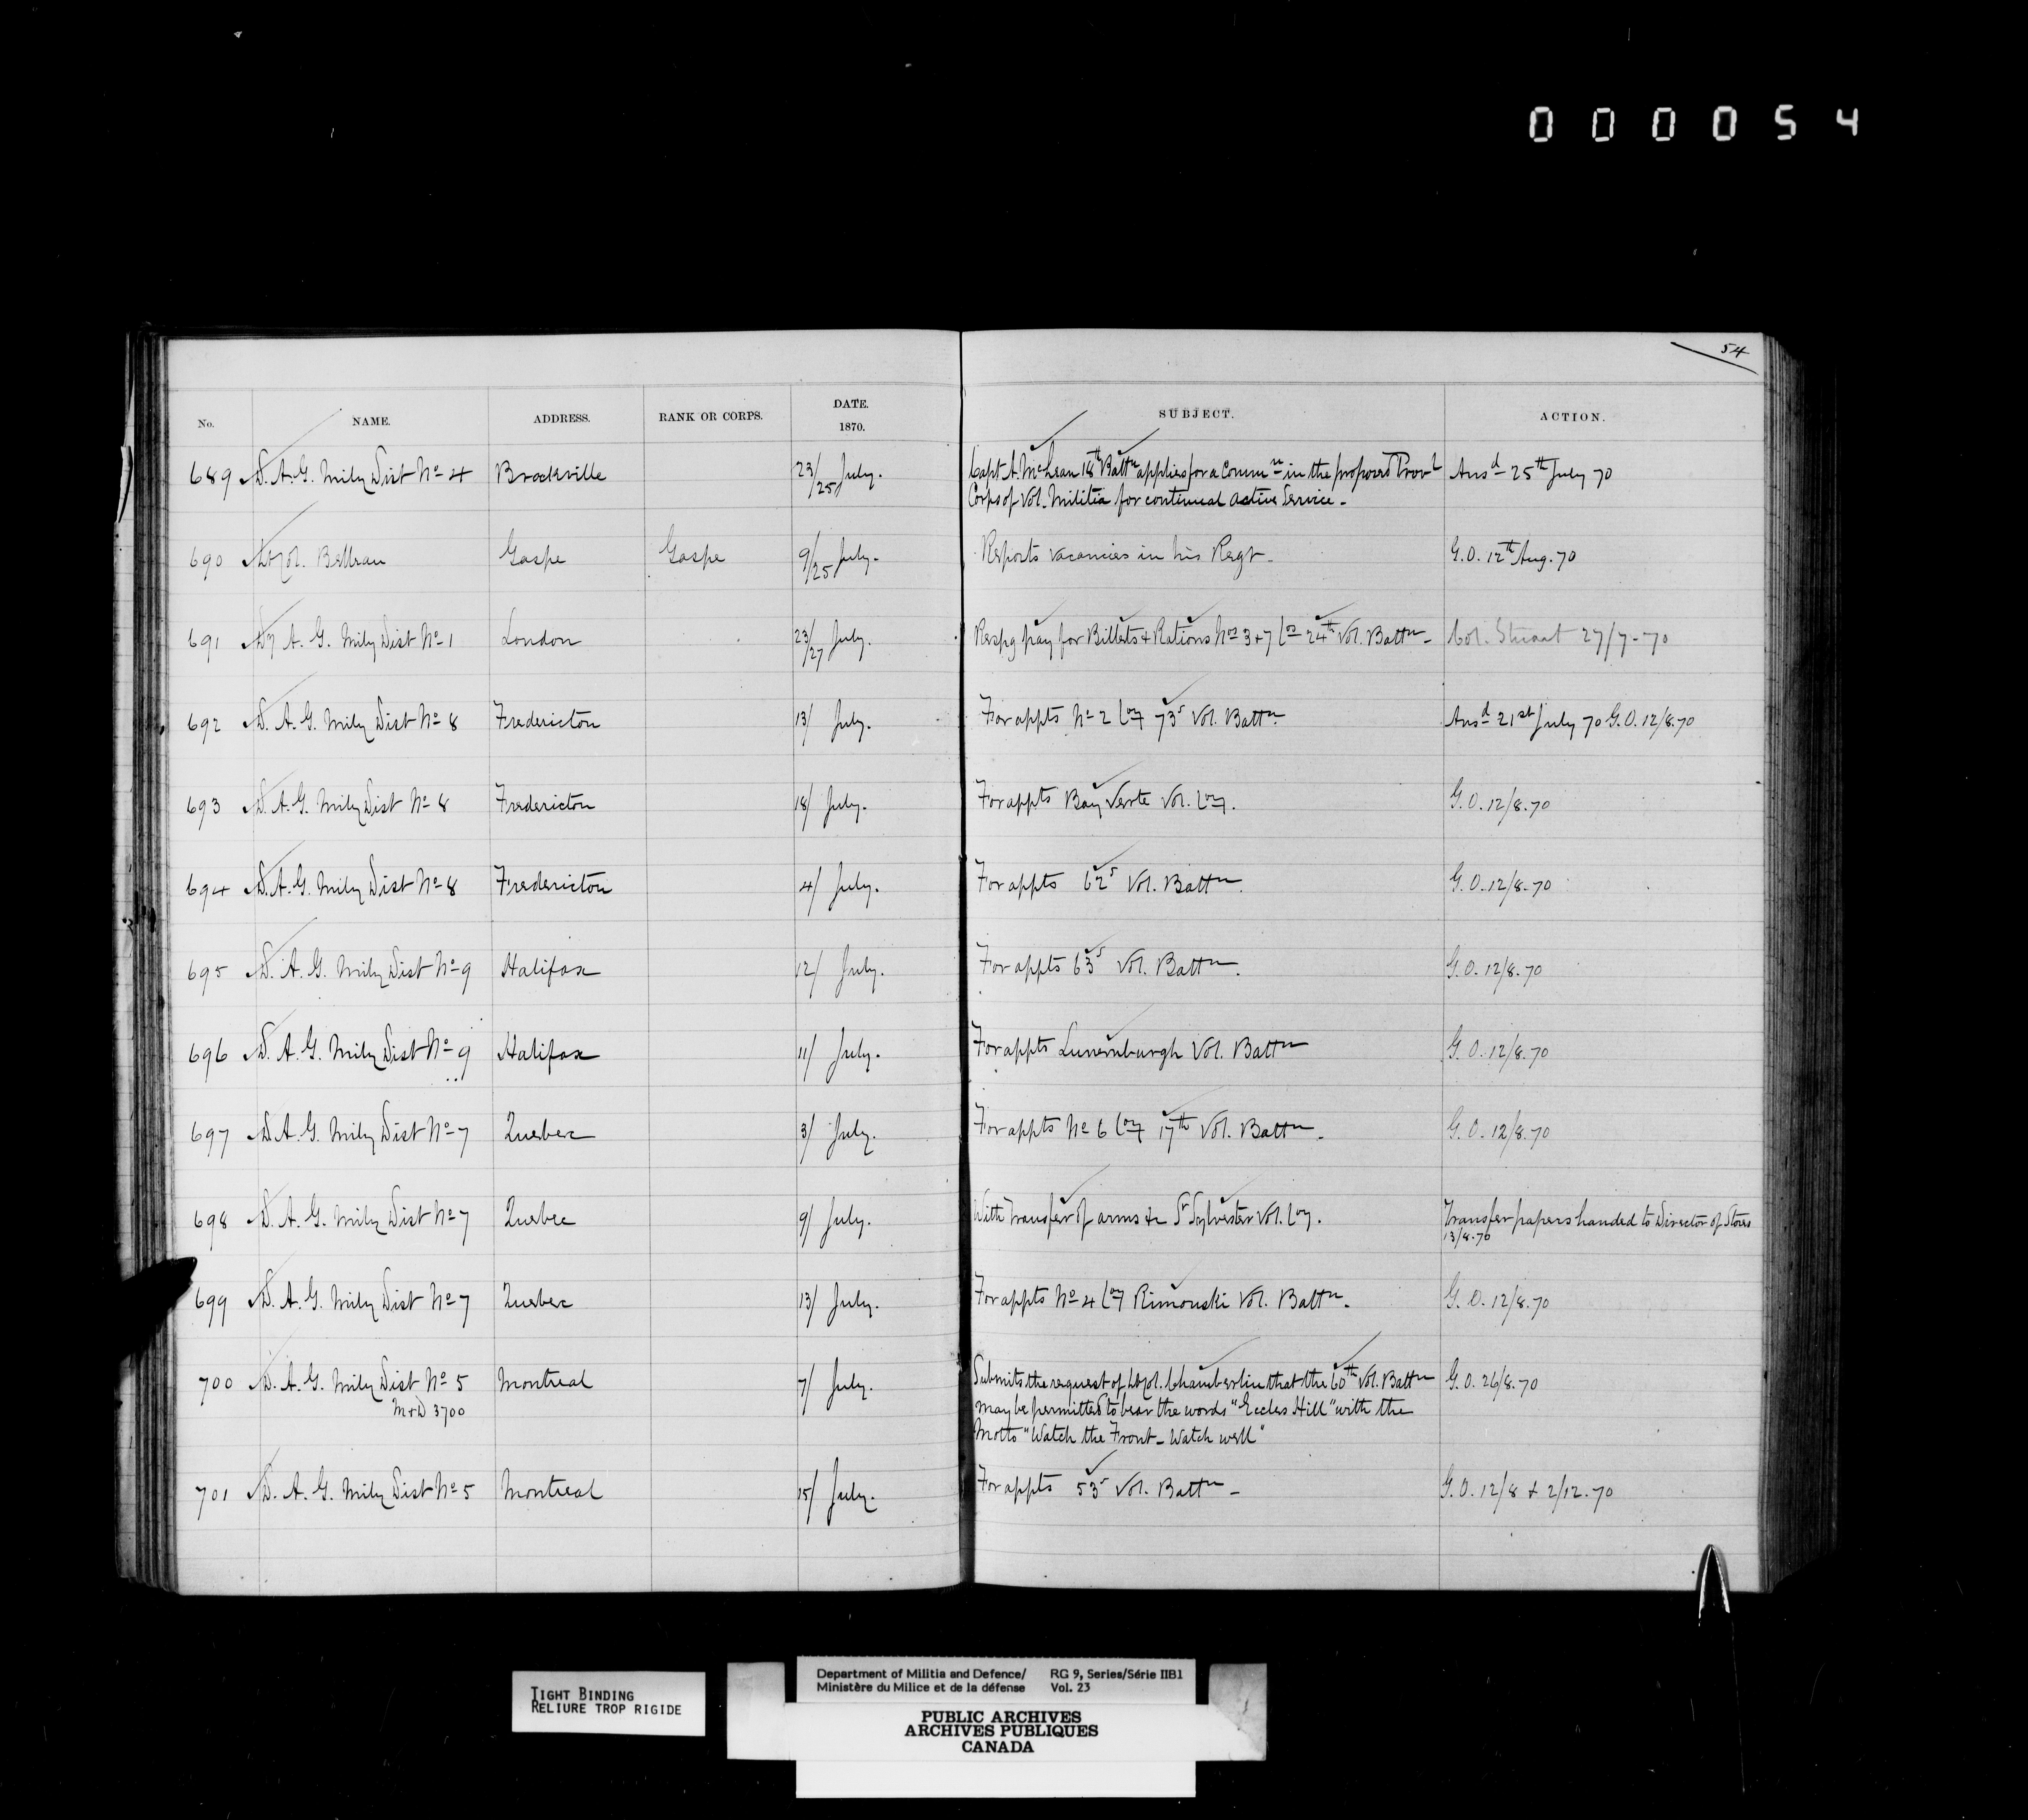 000054
54
No. NAME. ADDRESS. RANK OR CORPS. DATE. 1870. SUBJECT. ACTION.
689 D. A. G. Mily Dist No 4 Brockville 23/25 July. Capt A. McLean 18th Battn applies for a Commn in the proposed Provl Ansd 25th July 70
Corps of Vol. Militia for continual active Service -
690 Lt Col. Belleau Gaspe Gaspe 9/25 July - Reports vacancies in his Regt - G. O. 12th Aug. 70
691 Dy A. G. Mily Dist No 1 London 23/27 July. Respg pay for Billets & Rations Nos 3 & 7 Cos 24th Vol. Battn - Col. Stuart 27/7-70
692 D. A. G. Mily Dist No 8 Fredericton 13/ July. For appts No 2 Coy 73d Vol. Battn Ansd 21st July 70 G. O. 12/8.70
693 D. A. G. Mily Dist No 8 Fredericton 18/ July. For appts Bay Verte Vol. Coy. G. O. 12/8.70
694 D. A. G. Mily Dist No 8 Fredericton 4/ July. For appts 62d Vol. Battn. G. O. 12/8.70
695 D. A. G. Mily Dist No 9 Halifax 12/ July. For appts 63d Vol. Battn. G. O. 12/8.70
696 D. A. G. Mily Dist No 9 Halifax 11/ July. For appts Lunenburgh Vol. Battn G. O. 12/8.70
697 D. A. G. Mily Dist No 7 Quebec 3/ July. For appts No 6 Coy 17th Vol. Battn. G. O. 12/8.70
698 D. A. G. Mily Dist No 7 Quebec 9/ July. With transfer of arms &c St Sylvester Vol. Coy. Transfer papers handed to Director of Stores
13/8.70
699 D. A. G. Mily Dist No 7 Quebec 13/ July. For appts No 4 Coy Rimouski Vol. Battn. G. O. 12/8.70
700 D. A. G. Mily Dist No 5 Montreal 7/ July. Submits the request of Lt Col. Chamberlin that the 60th Vol. Battn G. O. 26/8.70
M & D 3700 may be permitted to bear the words "Eccles Hill" with the
Motto "Watch the Front - Watch well"
701 D. A. G. Mily Dist No 5 Montreal 15/ July. For appts 53d Vol. Battn - G. O. 12/8 & 2/12.70
TIGHT BINDING
RELIURE TROP RIGIDE
Department of Militia and Defence/ RG 9, Series/Série IIB1
Ministère du Milice et de la défense Vol. 23
PUBLIC ARCHIVES
ARCHIVES PUBLIQUES
CANADA